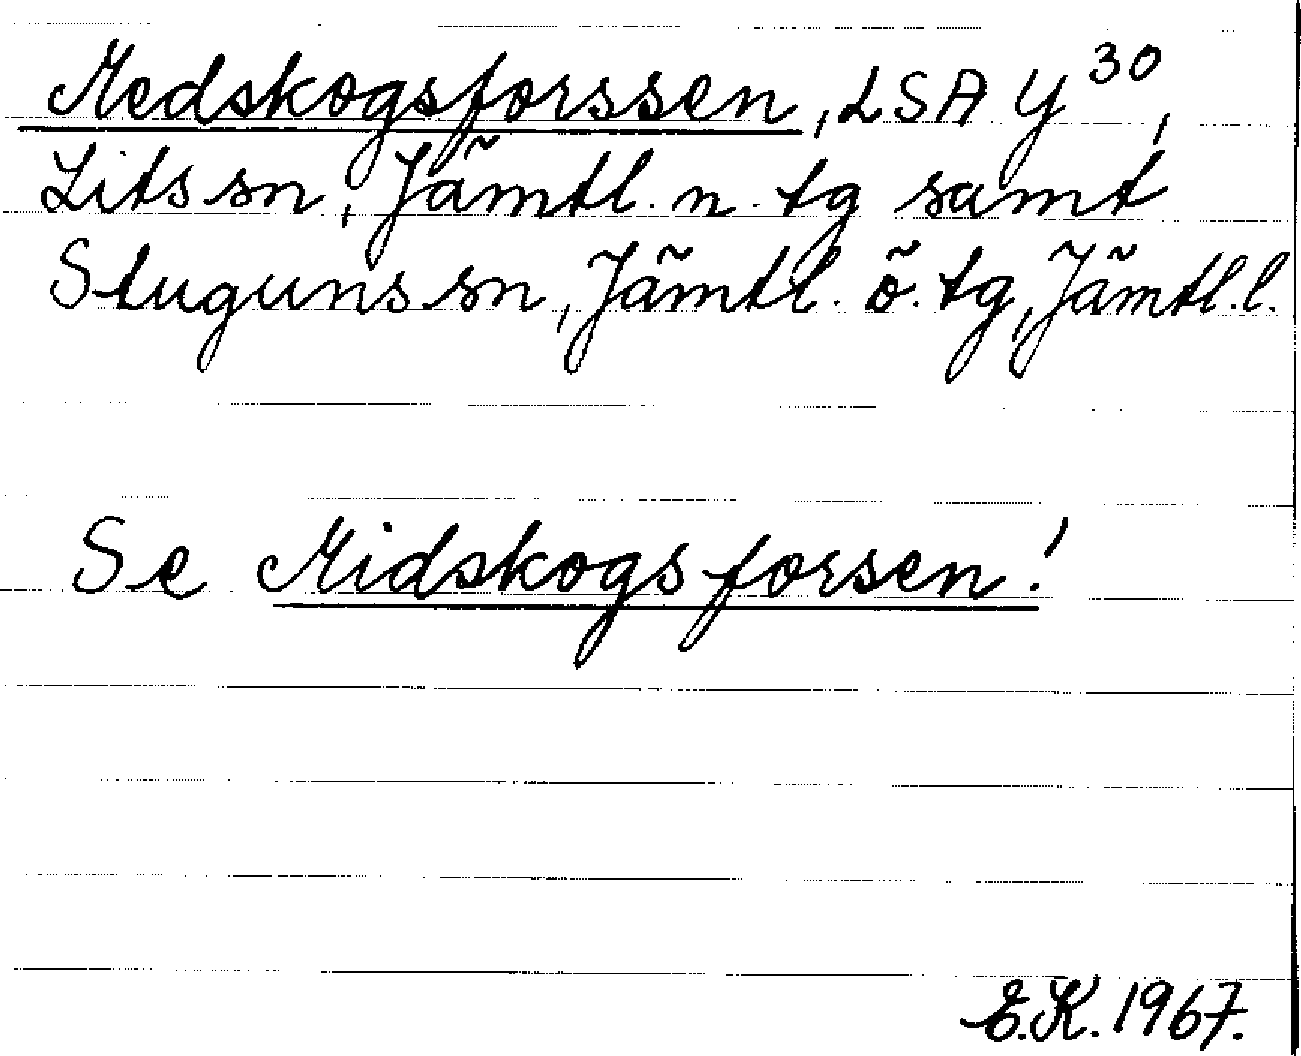 Medskogsforssen, LSA Y 30,
Lits sn, Jämtl. n. tg samt
Stuguns sn, Jämtl. ö. tg, Jämtl. l.
Se Midskogsforsen!
E.K. 1967.